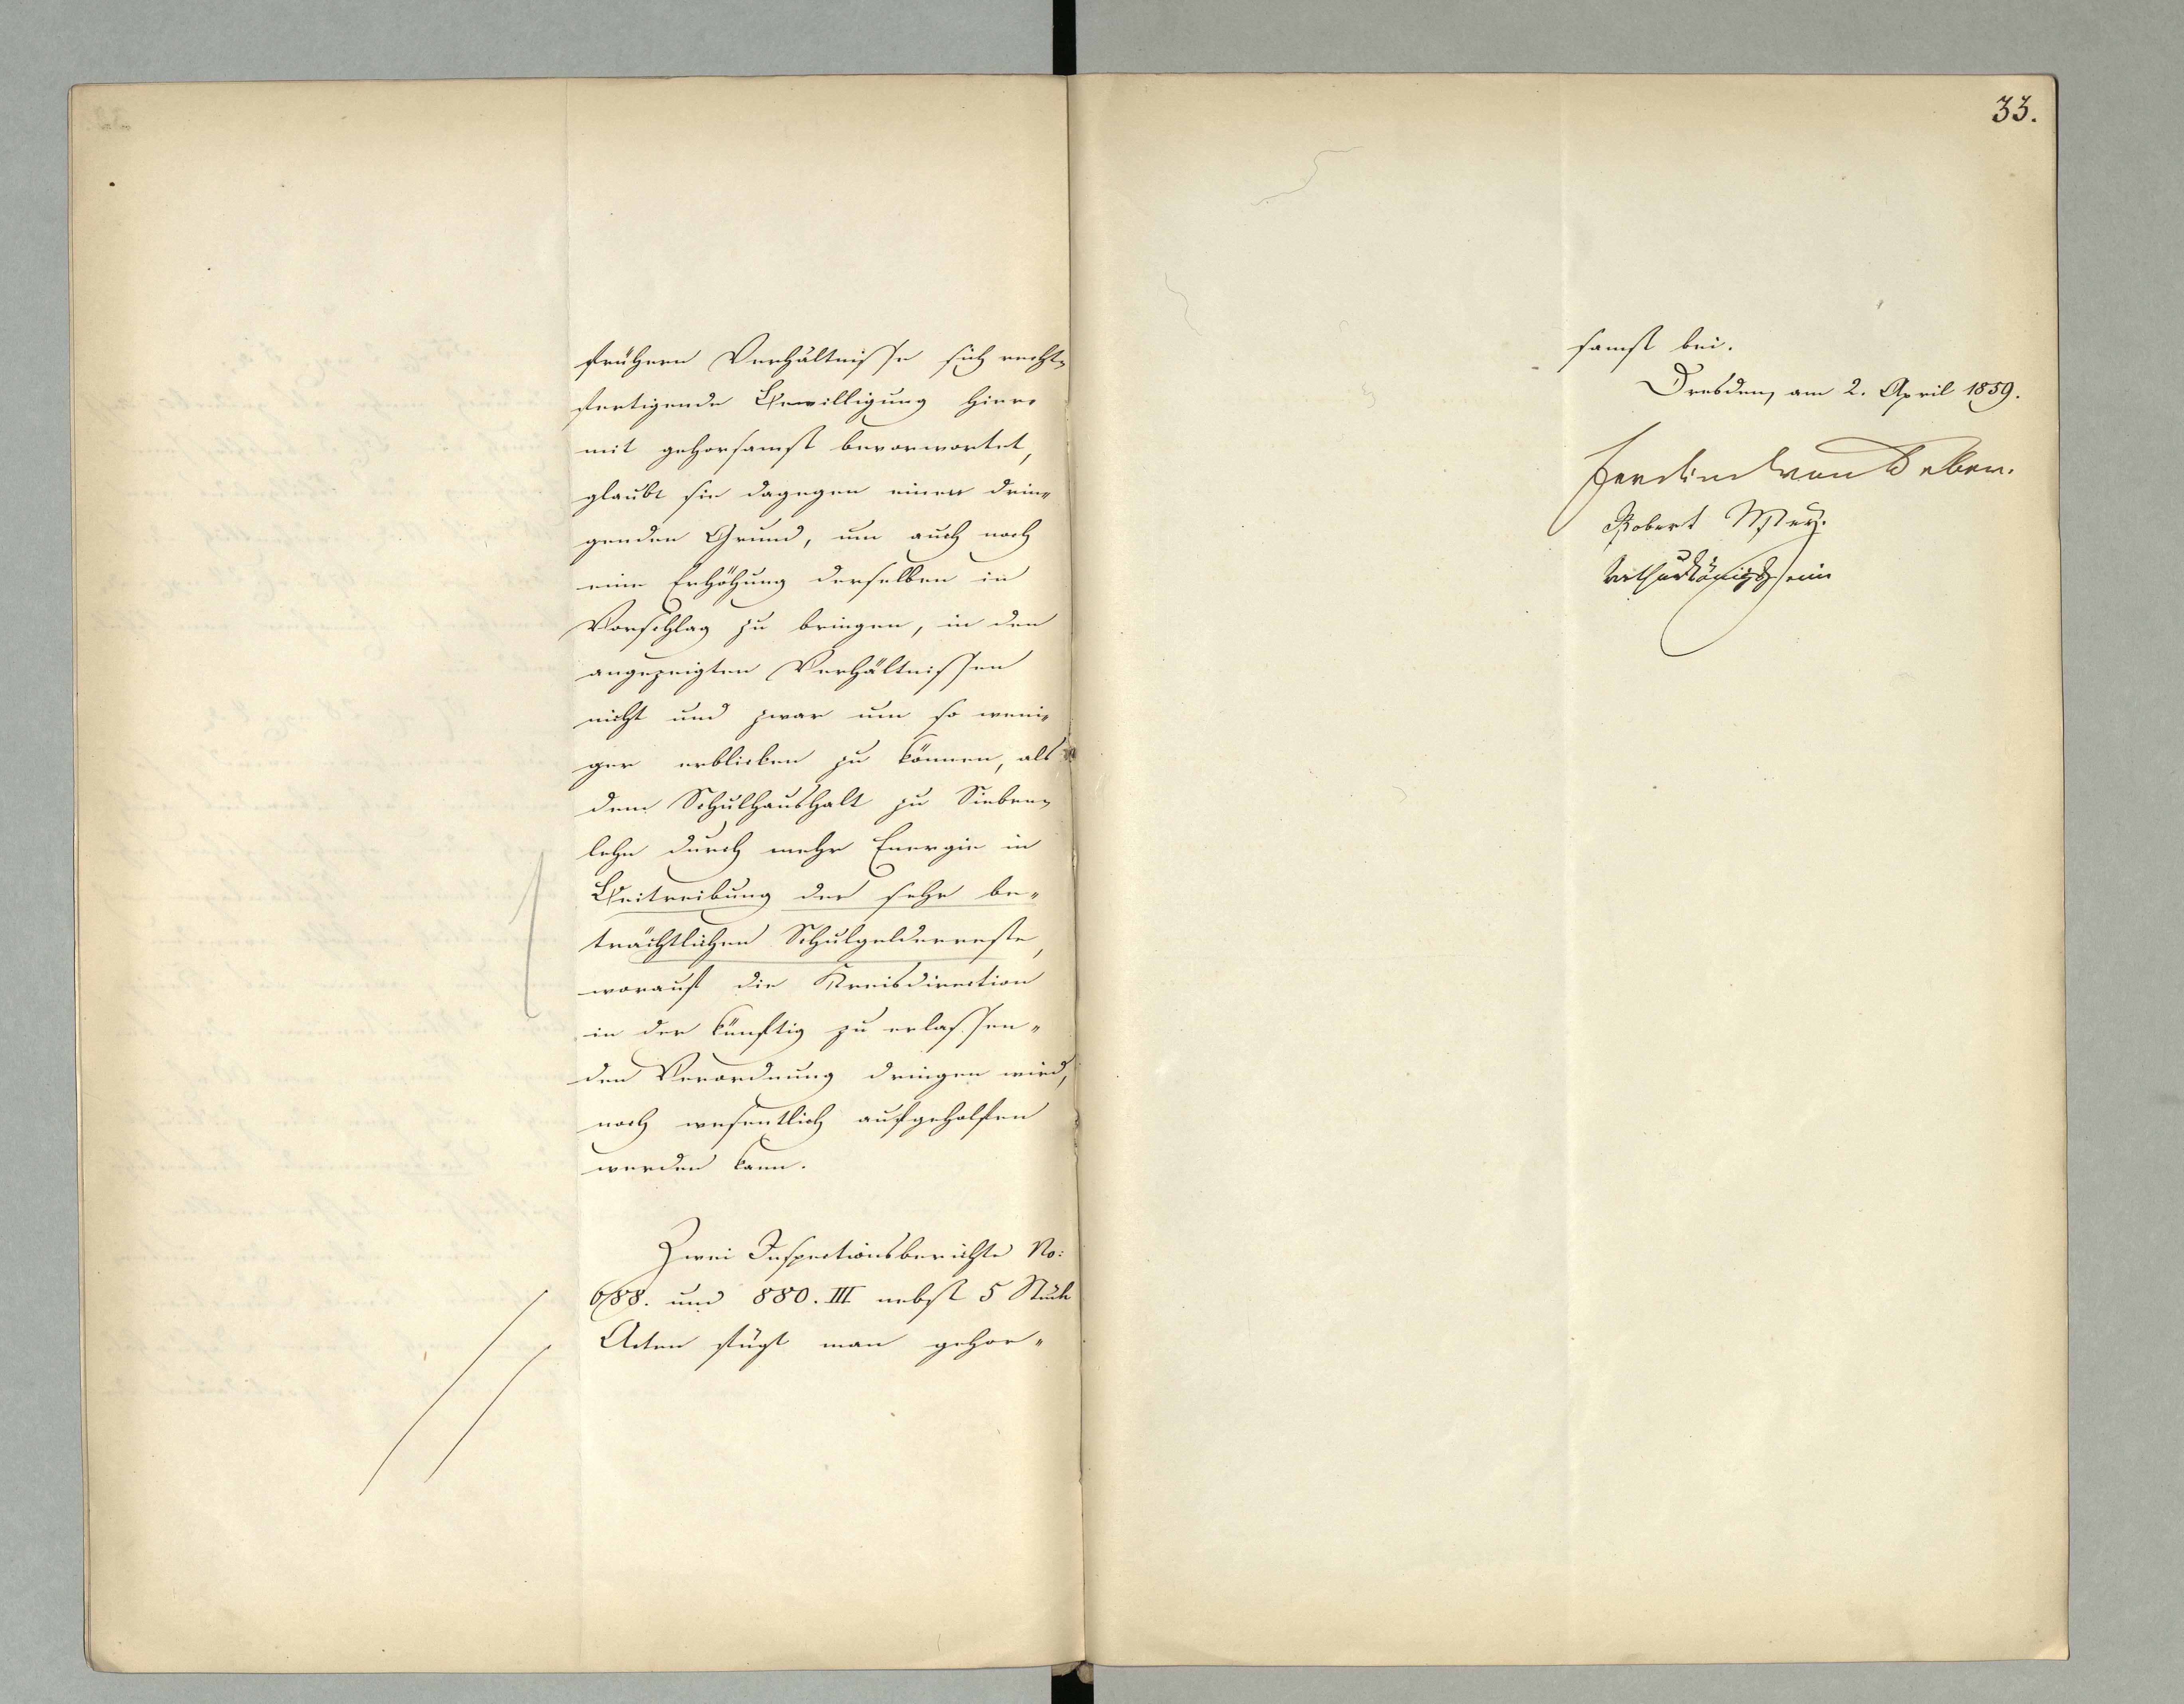 frühern Verhältnisse sich recht-
fertigende Bewilligung hier-
mit gehorsamst bevorwortet,
glaubt sie dagegen einen drin-
genden Grund, um auch noch
eine Erhöhung derselben in
Vorschlag zu bringen, in den
angezeigten Verhältnissen
nicht und zwar um so weni-
ger erblicken zu können, als
dem Schulhaushalt zu Sieben-
lehn durch mehr Energie in
Beitreibung der sehr be-
trächtlichen Schulgelderreste,
worauf die Kreisdirection
in der künftig zu erlassen-
den Verordnung dringen wird,
noch wesentlich aufgeholfen
werden kann.
Zwei Inspectionsberichte No:
688. und 880. III nebst 5 Stück
Acten fügt man gehor-
33.
samst bei.
Dresden, am 2. April 1859.
Robert